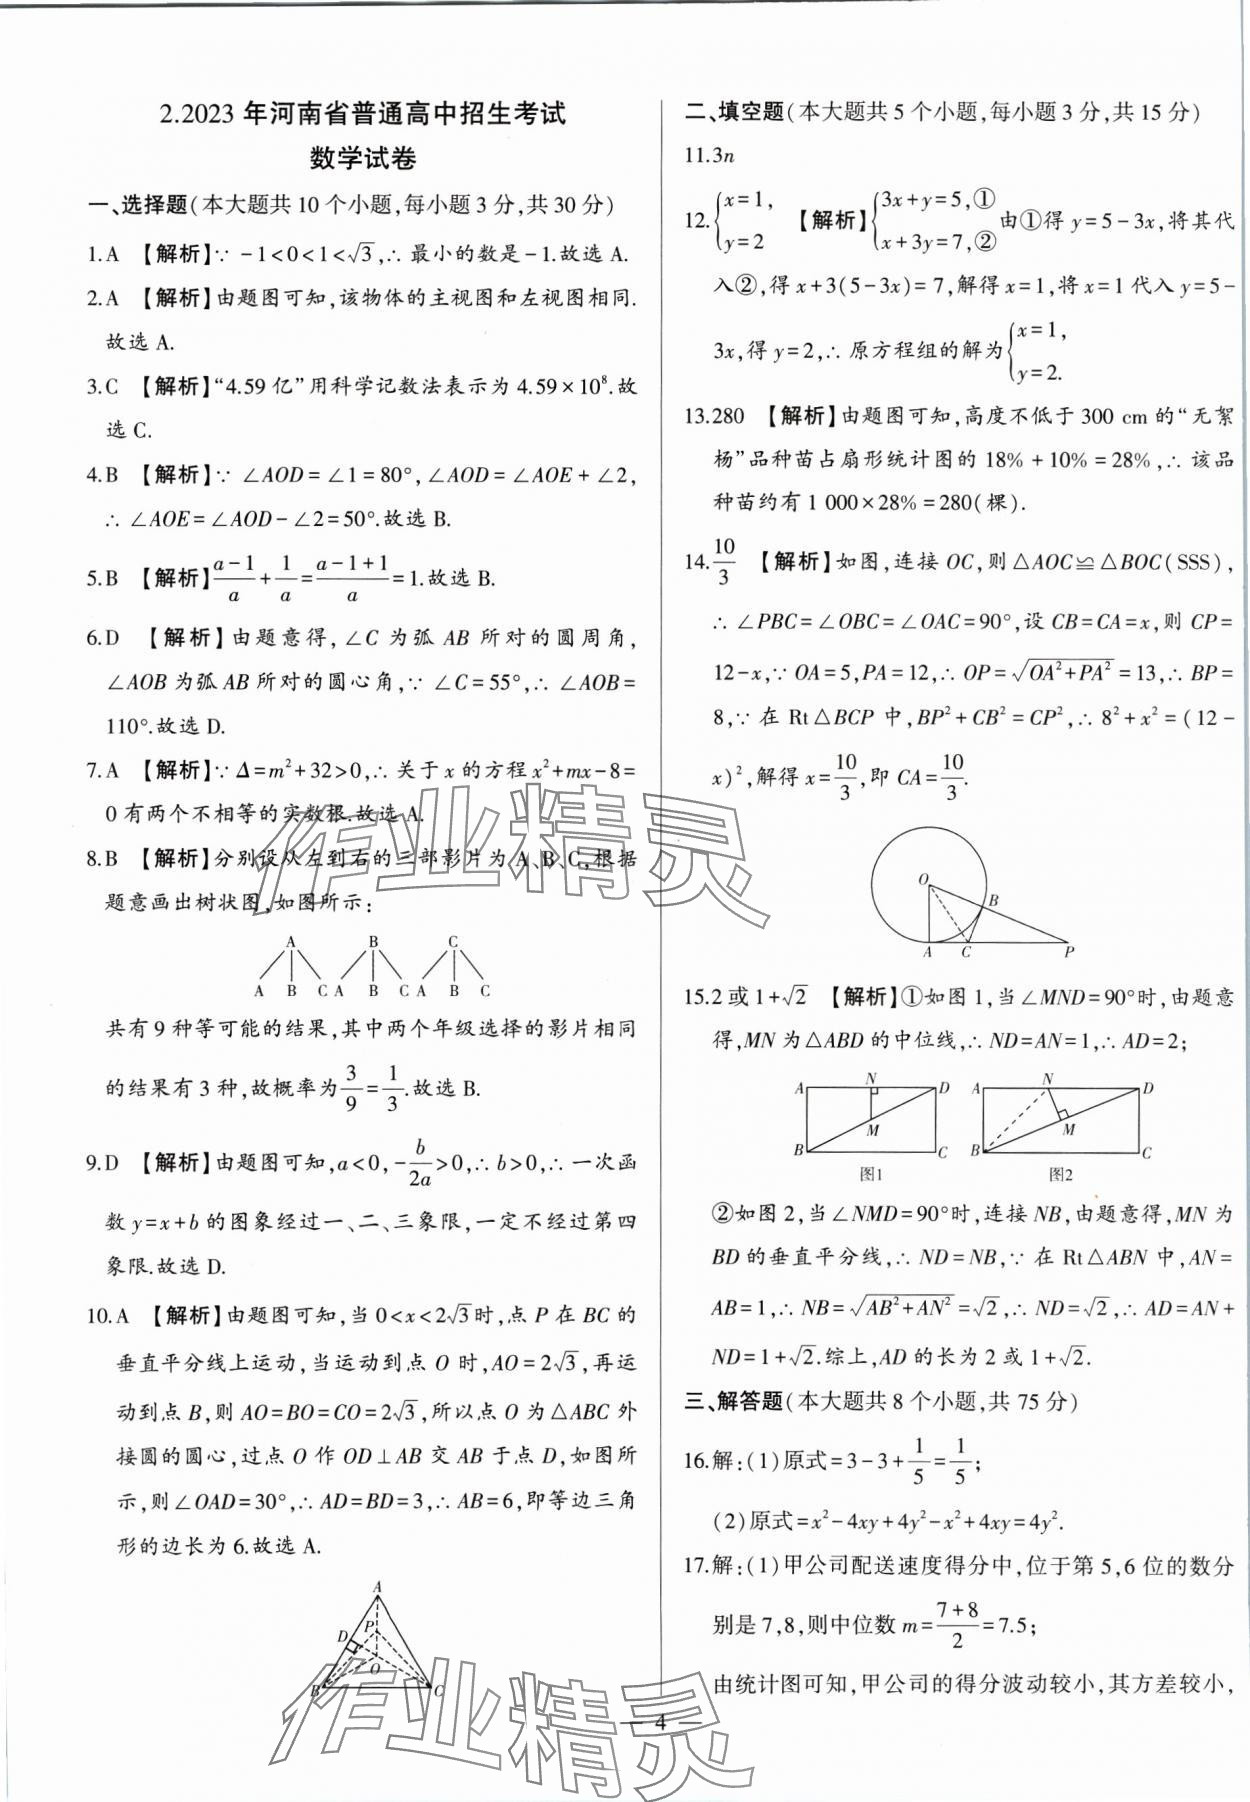 2.2023年河南省普通高中招生考试
数学试卷
一、选择题(本大题共10个小题,每小题3分,共30分)
1.A 【解析】∵ -1<0<1<√3,∴ 最小的数是-1.故选A.
2.A 【解析】由题图可知,该物体的主视图和左视图相同.
故选A.
3.C 【解析】“4.59亿”用科学记数法表示为4.59×10⁸.故
选C.
4.B 【解析】∵ ∠AOD=∠1=80°,∠AOD=∠AOE+∠2,
∴ ∠AOE=∠AOD-∠2=50°.故选B.
5.B 【解析】(a-1)/a+1/a=(a-1+1)/a=1.故选B.
6.D 【解析】由题意得,∠C为弧AB所对的圆周角,
∠AOB为弧AB所对的圆心角,∵ ∠C=55°,∴ ∠AOB=
110°.故选D.
7.A 【解析】∵Δ=m²+32>0,∴关于x的方程x²+mx-8=
0有两个不相等的实数根.故选A.
8.B 【解析】分别设从左到右的三部影片为A、B、C,根据
题意画出树状图,如图所示:
A B C
A B C A B C A B C
共有9种等可能的结果,其中两个年级选择的影片相同
的结果有3种,故概率为3/9=1/3.故选B.
9.D 【解析】由题图可知,a<0,-b/2a>0,∴b>0,∴一次函
数y=x+b的图象经过一、二、三象限,一定不经过第四
象限.故选D.
10.A 【解析】由题图可知,当0<x<2√3时,点P在BC的
垂直平分线上运动,当运动到点O时,AO=2√3,再运
动到点B,则AO=BO=CO=2√3,所以点O为△ABC外
接圆的圆心,过点O作OD⊥AB交AB于点D,如图所
示,则∠OAD=30°,∴AD=BD=3,∴AB=6,即等边三角
形的边长为6.故选A.
A
P
D
O
B C
二、填空题(本大题共5个小题,每小题3分,共15分)
11.3n
12.{x=1, y=2 【解析】{3x+y=5,① x+3y=7,② 由①得y=5-3x,将其代
入②,得x+3(5-3x)=7,解得x=1,将x=1代入y=5-
3x,得y=2,∴原方程组的解为{x=1, y=2.
13.280 【解析】由题图可知,高度不低于300 cm的“无絮
杨”品种苗占扇形统计图的18%+10%=28%,∴该品
种苗约有1 000×28%=280(棵).
14.10/3 【解析】如图,连接OC,则△AOC≌△BOC(SSS),
∴ ∠PBC=∠OBC=∠OAC=90°,设CB=CA=x,则CP=
12-x,∵ OA=5,PA=12,∴ OP=√(OA²+PA²)=13,∴ BP=
8,∵ 在Rt△BCP中,BP²+CB²=CP²,∴ 8²+x²=(12-
x)²,解得x=10/3,即CA=10/3.
O
B
A C P
15.2或1+√2 【解析】①如图1,当∠MND=90°时,由题意
得,MN为△ABD的中位线,∴ ND=AN=1,∴ AD=2;
A N D A N D
M M
B C B C
图1 图2
②如图2,当∠NMD=90°时,连接NB,由题意得,MN为
BD的垂直平分线,∴ ND=NB,∵ 在Rt△ABN中,AN=
AB=1,∴ NB=√(AB²+AN²)=√2,∴ ND=√2,∴ AD=AN+
ND=1+√2.综上,AD的长为2或1+√2.
三、解答题(本大题共8个小题,共75分)
16.解:(1)原式=3-3+1/5=1/5;
(2)原式=x²-4xy+4y²-x²+4xy=4y².
17.解:(1)甲公司配送速度得分中,位于第5,6位的数分
别是7,8,则中位数m=(7+8)/2=7.5;
由统计图可知,甲公司的得分波动较小,其方差较小,
— 4 —
作业精灵
作业精灵